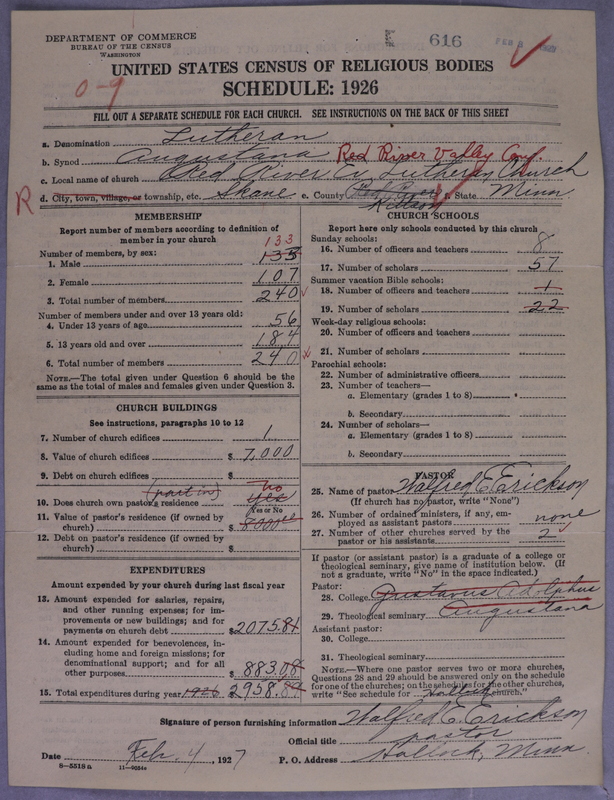 DEPARTMENT OF COMMERCE
BUREAU OF THE CENSUS
WASHINGTON
616
FEB 8
0-9
UNITED STATES CENSUS OF RELIGIOUS BODIES
SCHEDULE: 1926
FILL OUT A SEPARATE SCHEDULE FOR EACH CHURCH. SEE INSTRUCTIONS ON THE BACK OF THIS SHEET
a. Denomination Lutheran
b. Synod Augustana Red River Valley Conf.
c. Local name of church Red River Ev. Lutheran Church
R d. City, town, village, or township, etc. Skane e. County Kittson f. State Minn
MEMBERSHIP
Report number of members according to definition of
member in your church
133
Number of members, by sex:
1. Male 133
2. Female 107
3. Total number of members 240
Number of members under and over 13 years old:
4. Under 13 years of age 56
5. 13 years old and over 184
6. Total number of members 240
NOTE.—The total given under Question 6 should be the
same as the total of males and females given under Question 3.
CHURCH BUILDINGS
See instructions, paragraphs 10 to 12
7. Number of church edifices 1
8. Value of church edifices $ 7,000
9. Debt on church edifices $
(part in) no
10. Does church own pastor's residence yes
Yes or No
11. Value of pastor's residence (if owned by
church) $ 8000
12. Debt on pastor's residence (if owned by
church) $
EXPENDITURES
Amount expended by your church during last fiscal year
13. Amount expended for salaries, repairs,
and other running expenses; for im-
provements or new buildings; and for
payments on church debt $ 2075.81
14. Amount expended for benevolences, in-
cluding home and foreign missions; for
denominational support; and for all
other purposes $ 883.08
15. Total expenditures during year 1926 $ 2958.89
CHURCH SCHOOLS
Report here only schools conducted by this church
Sunday schools:
16. Number of officers and teachers 8
17. Number of scholars 57
Summer vacation Bible schools:
18. Number of officers and teachers 1
19. Number of scholars 22
Week-day religious schools:
20. Number of officers and teachers
21. Number of scholars
Parochial schools:
22. Number of administrative officers
23. Number of teachers—
a. Elementary (grades 1 to 8)
b. Secondary
24. Number of scholars—
a. Elementary (grades 1 to 8)
b. Secondary
PASTOR
25. Name of pastor Walfred E. Erickson
(If church has no pastor, write "None")
26. Number of ordained ministers, if any, em-
ployed as assistant pastors none
27. Number of other churches served by the
pastor or his assistants 2
If pastor (or assistant pastor) is a graduate of a college or
theological seminary, give name of institution below. (If
not a graduate, write "No" in the space indicated.)
Pastor:
28. College Gustavus Adolphus
29. Theological seminary Augustana
Assistant pastor:
30. College
31. Theological seminary
NOTE.—Where one pastor serves two or more churches,
Questions 28 and 29 should be answered only on the schedule
for one of the churches; on the schedules for the other churches,
write "See schedule for Hallock church."
Signature of person furnishing information Walfred E. Erickson
Official title pastor
Date Feb. 4, 1927 P. O. Address Hallock, Minn.
8-5518 a 11-9054